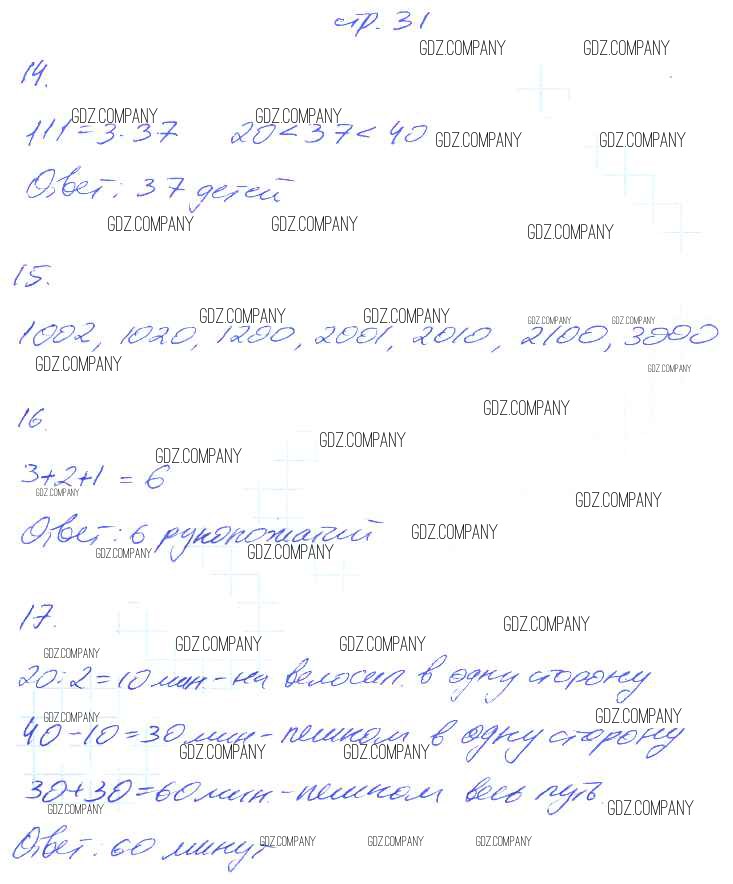 стр. 31
GDZ.COMPANY GDZ.COMPANY
14.
GDZ.COMPANY GDZ.COMPANY
111 = 3 · 37 20 < 37 < 40 GDZ.COMPANY GDZ.COMPANY
Ответ: 37 детей
GDZ.COMPANY GDZ.COMPANY GDZ.COMPANY
15.
GDZ.COMPANY GDZ.COMPANY GDZ.COMPANY GDZ.COMPANY
1002, 1020, 1200, 2001, 2010, 2100, 3000
GDZ.COMPANY GDZ.COMPANY
16.
GDZ.COMPANY GDZ.COMPANY GDZ.COMPANY
3+2+1 = 6
GDZ.COMPANY GDZ.COMPANY
Ответ: 6 рукопожатий GDZ.COMPANY
GDZ.COMPANY GDZ.COMPANY
17.
GDZ.COMPANY
GDZ.COMPANY GDZ.COMPANY GDZ.COMPANY
20:2=10 мин. - на велосип. в одну сторону
GDZ.COMPANY GDZ.COMPANY
40-10=30 мин - пешком в одну сторону
GDZ.COMPANY GDZ.COMPANY
30+30=60 мин. - пешком весь путь
GDZ.COMPANY GDZ.COMPANY
Ответ: 60 минут GDZ.COMPANY GDZ.COMPANY GDZ.COMPANY